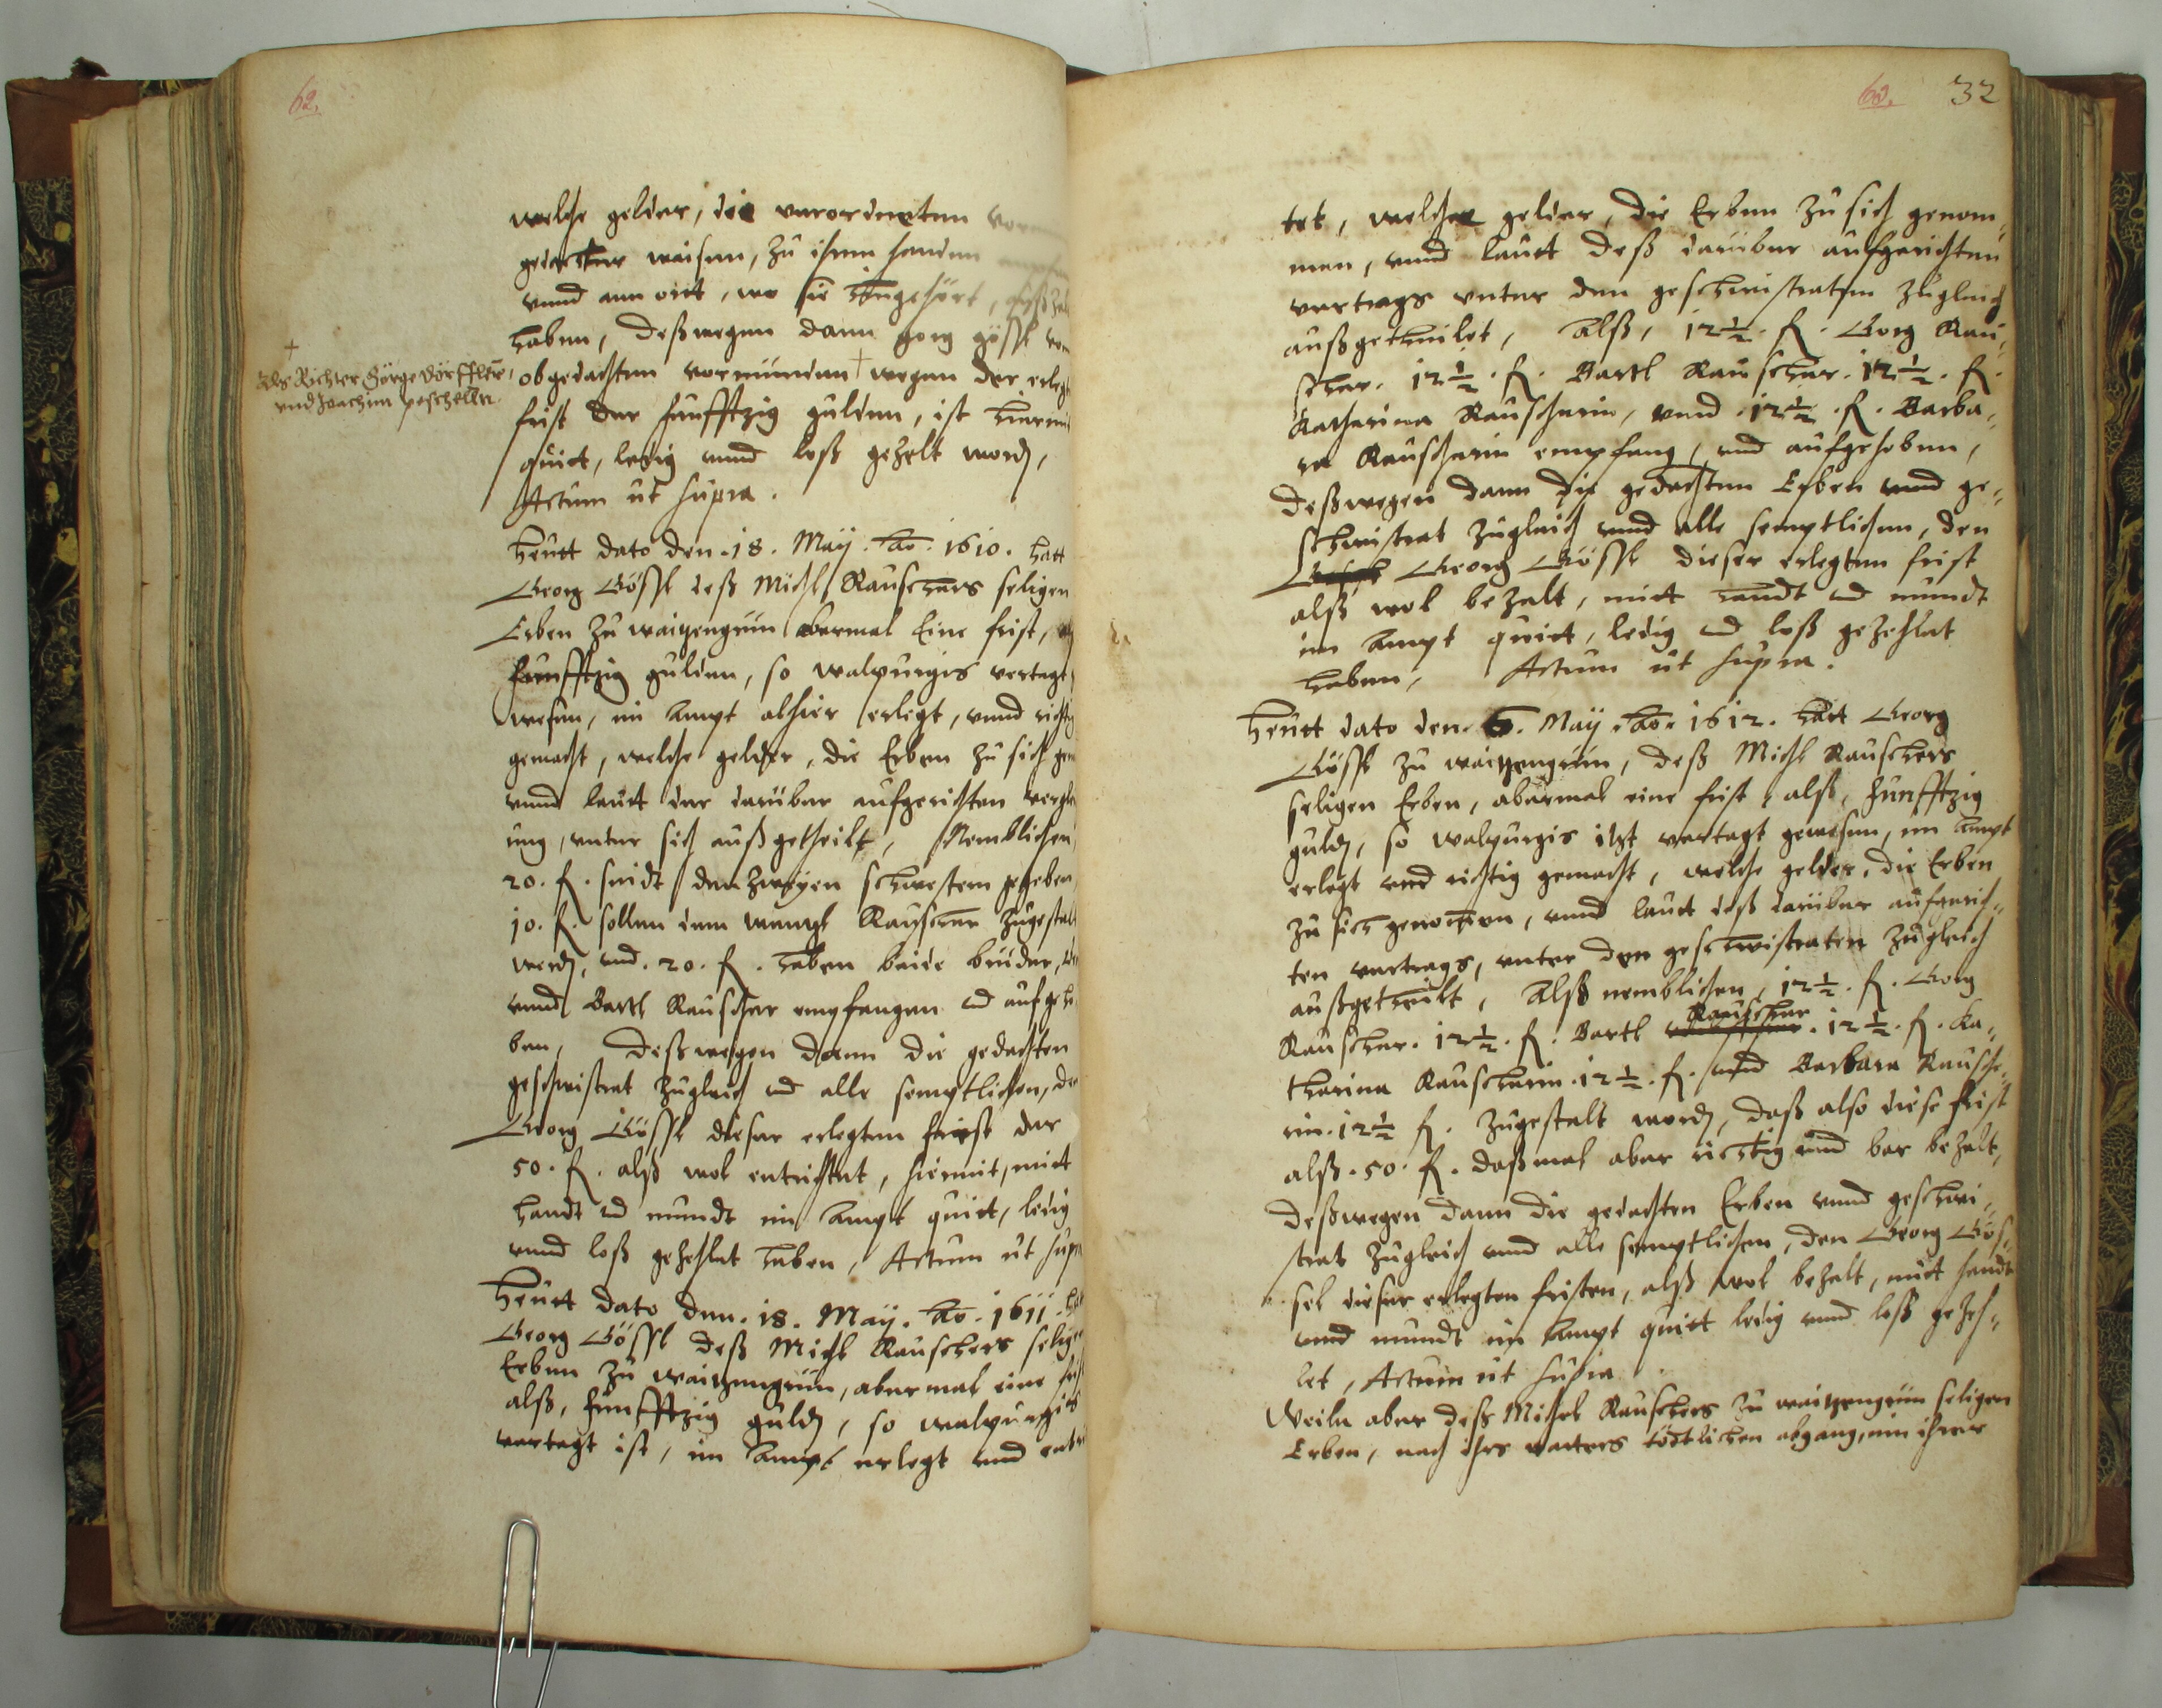 62.
welche gelder, die verordenten vorm
gedachter waisen, zu ihren handen
vnnd ann ortt, wo sie hingehört,
haben, Deßwegen dann gorg gössl von
obgedachten vormunden † wegen der erlegt
frist der funfftzig gulden, ist hiermit
quitt, ledig vnnd loß gezelt word,
Actum ut supra.
†
Als Richter Görge Dörffler,
vnd Joachim peschelln.
Heutt dato den. 18. May. Ao. 1610. hatt
Georg Gössl deß Michl Rauschers seligen
Erben zu waitzengrün abermal Eine frist,
funfftzig gulden, so walpurgis vertagt
wesen, im Ampt alhier erlegt, vnnd richtig
gemacht, welche gelder, die Erben zu sich gen
vnnd lautt der darüber aufgerichten vergle
ung, vnter sich außgetheilt, Nemblichen
20. fl. seindt den zweyen schwestern gegeben
10. fl. sollen dem wentzl Rauscher zugestalt
werd, vnd. 20. fl. haben beide brüder,
vnnd Bartl Rauscher empfangen vnd aufgeho
ben, Deßwegen dann die gedachten
geschwistrat zugleich vnd alle semptlichen, den
Georg Gössl dieser erlegten frist der
50. fl. alß wol entrichtet, hiermit, mitt
handt vnd mundt im Ampt quitt, ledig
vnnd loß gezehlet haben, Actum ut supra
Heutt dato den. 18. May. Ao. 1611. hat
Georg Gössl deß Michl Rauschers seligen
Erben zu waitzengrün, abermal eine frist
alß, funfftzig guld, so walpurgis
vertagt ist, im Ampt erlegt vnnd entri
63. 32
tet, welche gelder, die Erben zu sich genom¬
men, vnnd lautt deß darüber aufgerichten
vertrags vnter den geschwistraten zugleich
außgetheilet, Alß, 12½. fl. Georg Rau¬
scher. 12½. fl. Bartl Rauscher. 12½. fl.
Katharina Rauscherin, vnnd. 12½. fl. Barba¬
ra Rauscherin empfang, vnd aufgehoben,
Deßwegen dann die gedachten Erben vnnd ge¬
schwistrat zugleich vnnd alle semptlichen, den
Georg Gössl dieser erlegten frist
alß wol bezalt, mitt handt vnd mundt
im Ampt quitt, ledig vnd loß gezehlet
haben, Actum ut supra.
Heutt dato den. 6. May. Ao. 1612. hatt Georg
Gössl zu waitzengrün, deß Michl Rauschers
seligen Erben, abermal eine frist, alß, funfftzig
guld, so walpurgis itzt vertagt gewesen, im Ampt
erlegt vnnd richtig gemacht, welche gelder, die Erben
zu sich genommen, vnnd lautt deß darüber aufgerich¬
ten vertrags, vnter den geschwistraten zugleich
außgetheilt, Alß nemblichen, 12½. fl. Georg
Rauscher. 12½. fl. Bartl Rauscher. 12½. fl. Ka¬
tharina Rauscherin. 12½. fl. vnnd Barbara Rausche¬
rin. 12½ fl. zugestalt word, daß also diese frist
alß. 50. fl. daßmal abar richtig vnnd bar bezalt,
Deßwegen dann die gedachten Erben vnnd geschwi¬
strat zugleich vnnd alle semptlichen, den Georg Gös¬
sel dieser erlegten fristen, alß wol bezalt, mitt handt
vnnd mundt im Ampt quitt ledig vnnd loß gezeh¬
let, Actum ut supra
Weiln aber deß Michel Rauschers zu waitzengrün seligen
Erben, nach ihrs vatters tödtlichen abgang, inn ihrer